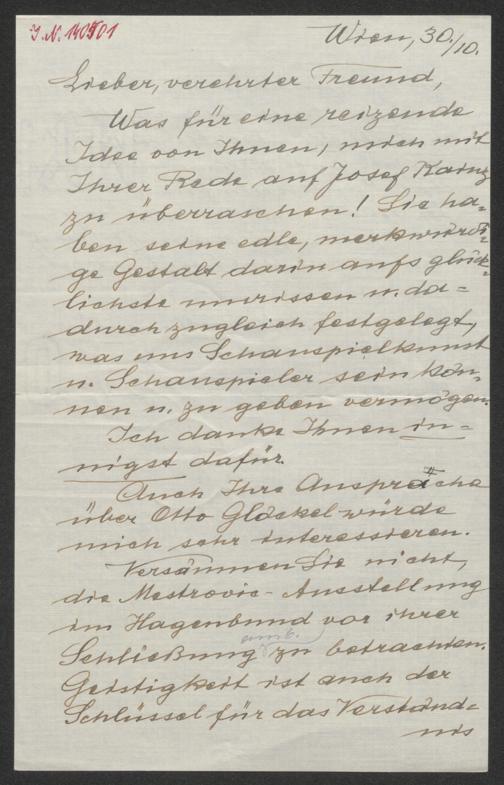 J.N. 140501
Wien, 30./10.
Lieber, verehrter Freund,
Was für eine reizende
Idee von Ihnen, mich mit
Ihrer Rede auf Josef Kainz
zu überraschen! Sie ha-
ben seine edle, merkwürdi-
ge Gestalt darin aufs glück-
lichste umrissen u. da-
durch zugleich festgelegt,
was uns Schauspielkunst
u. Schauspieler sein kön-
nen u. zu geben vermögen.
Ich danke Ihnen in-
nigst dafür.
Auch Ihre Ansprache
über Otto Glöckel würde
mich sehr interessieren.
Versäumen Sie nicht,
die Mestrovic-Ausstellung
im Hagenbund vor ihrer
Schließung zu betrachten.
Geistigkeit ist auch der
Schlüssel für das Verständ-
nis